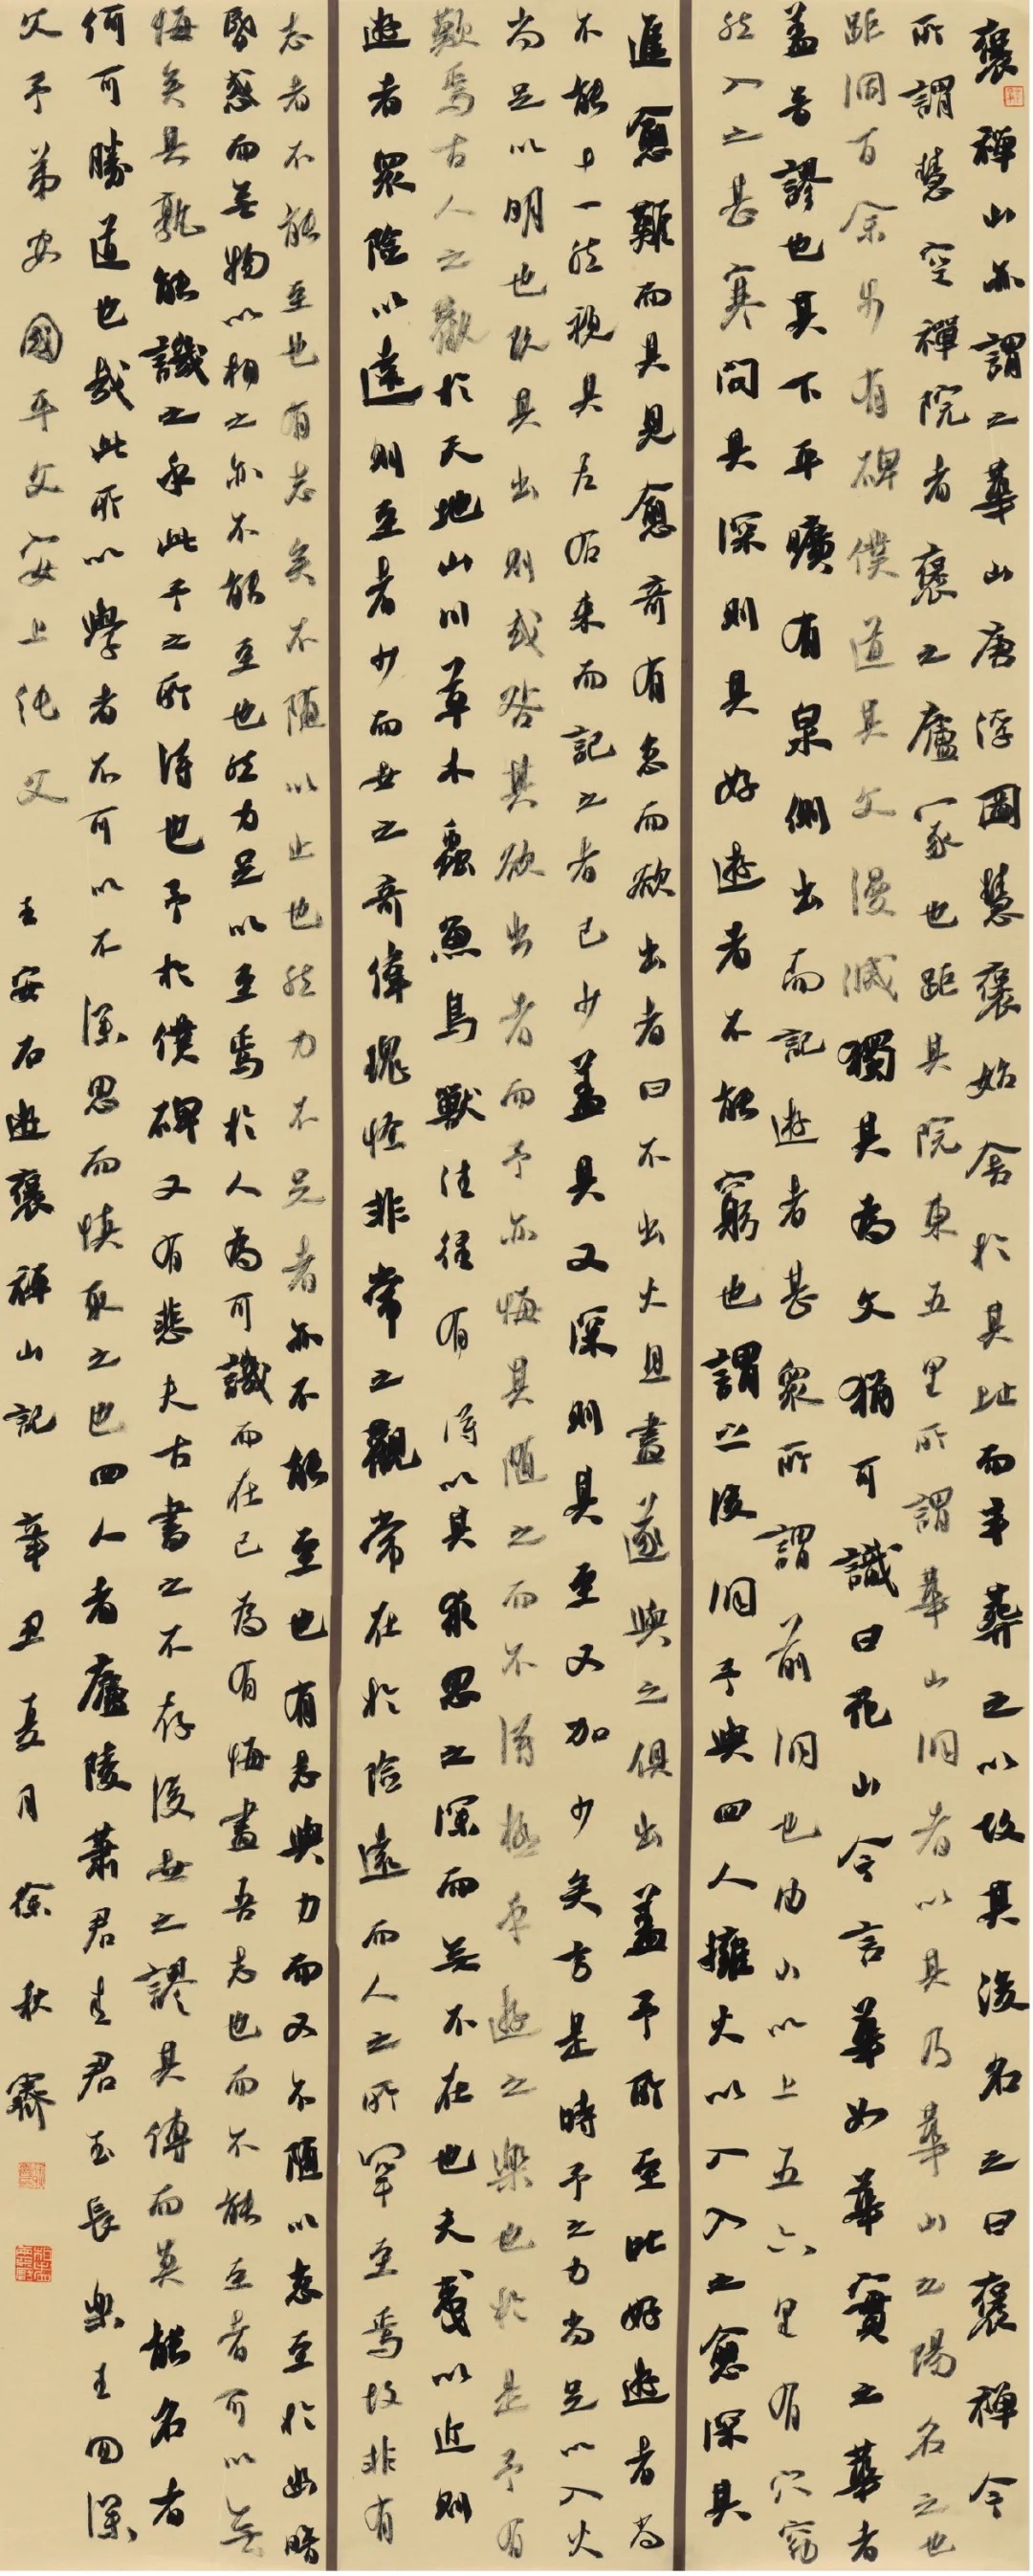 褒禪山亦謂之華山唐浮圖慧褒始舍於其址而卒葬之以故其後名之曰褒禪今
所謂慧空禪院者褒之廬冢也距其院東五里所謂華山洞者以其乃華山之陽名之也
距洞百余步有碑僕道其文漫滅獨其為文猶可識曰花山今言華如華實之華者
蓋音謬也其下平曠有泉側出而記遊者甚眾所謂前洞也由山以上五六里有穴窈
然入之甚寒問其深則其好遊者不能窮也謂之後洞予與四人擁火以入入之愈深其
進愈難而其見愈奇有怠而欲出者曰不出火且盡遂與之俱出蓋予所至比好遊者尚
不能十一然視其左右來而記之者已少蓋其又深則其至又加少矣方是時予之力尚足以入火
尚足以明也既其出則或咎其欲出者而予亦悔其隨之而不得極乎遊之樂也於是予有
歎焉古人之觀於天地山川草木蟲魚鳥獸往往有得以其求思之深而無不在也夫夷以近則
遊者眾險以遠則至者少而世之奇偉瑰怪非常之觀常在於險遠而人之所罕至焉故非有
志者不能至也有志矣不隨以止也然力不足者亦不能至也有志與力而又不隨以怠至於幽暗
昏惑而無物以相之亦不能至也然力足以至焉於人為可譏而在己為有悔盡吾志也而不能至者可以無
悔矣其孰能譏之乎此予之所得也予於僕碑又有悲夫古書之不存後世之謬其傳而莫能名者
何可勝道也哉此所以學者不可以不深思而慎取之也四人者廬陵蕭君圭君玉長樂王回深
父予弟安國平父安上純父 王安石遊褒禪山記 辛丑夏月 徐秋